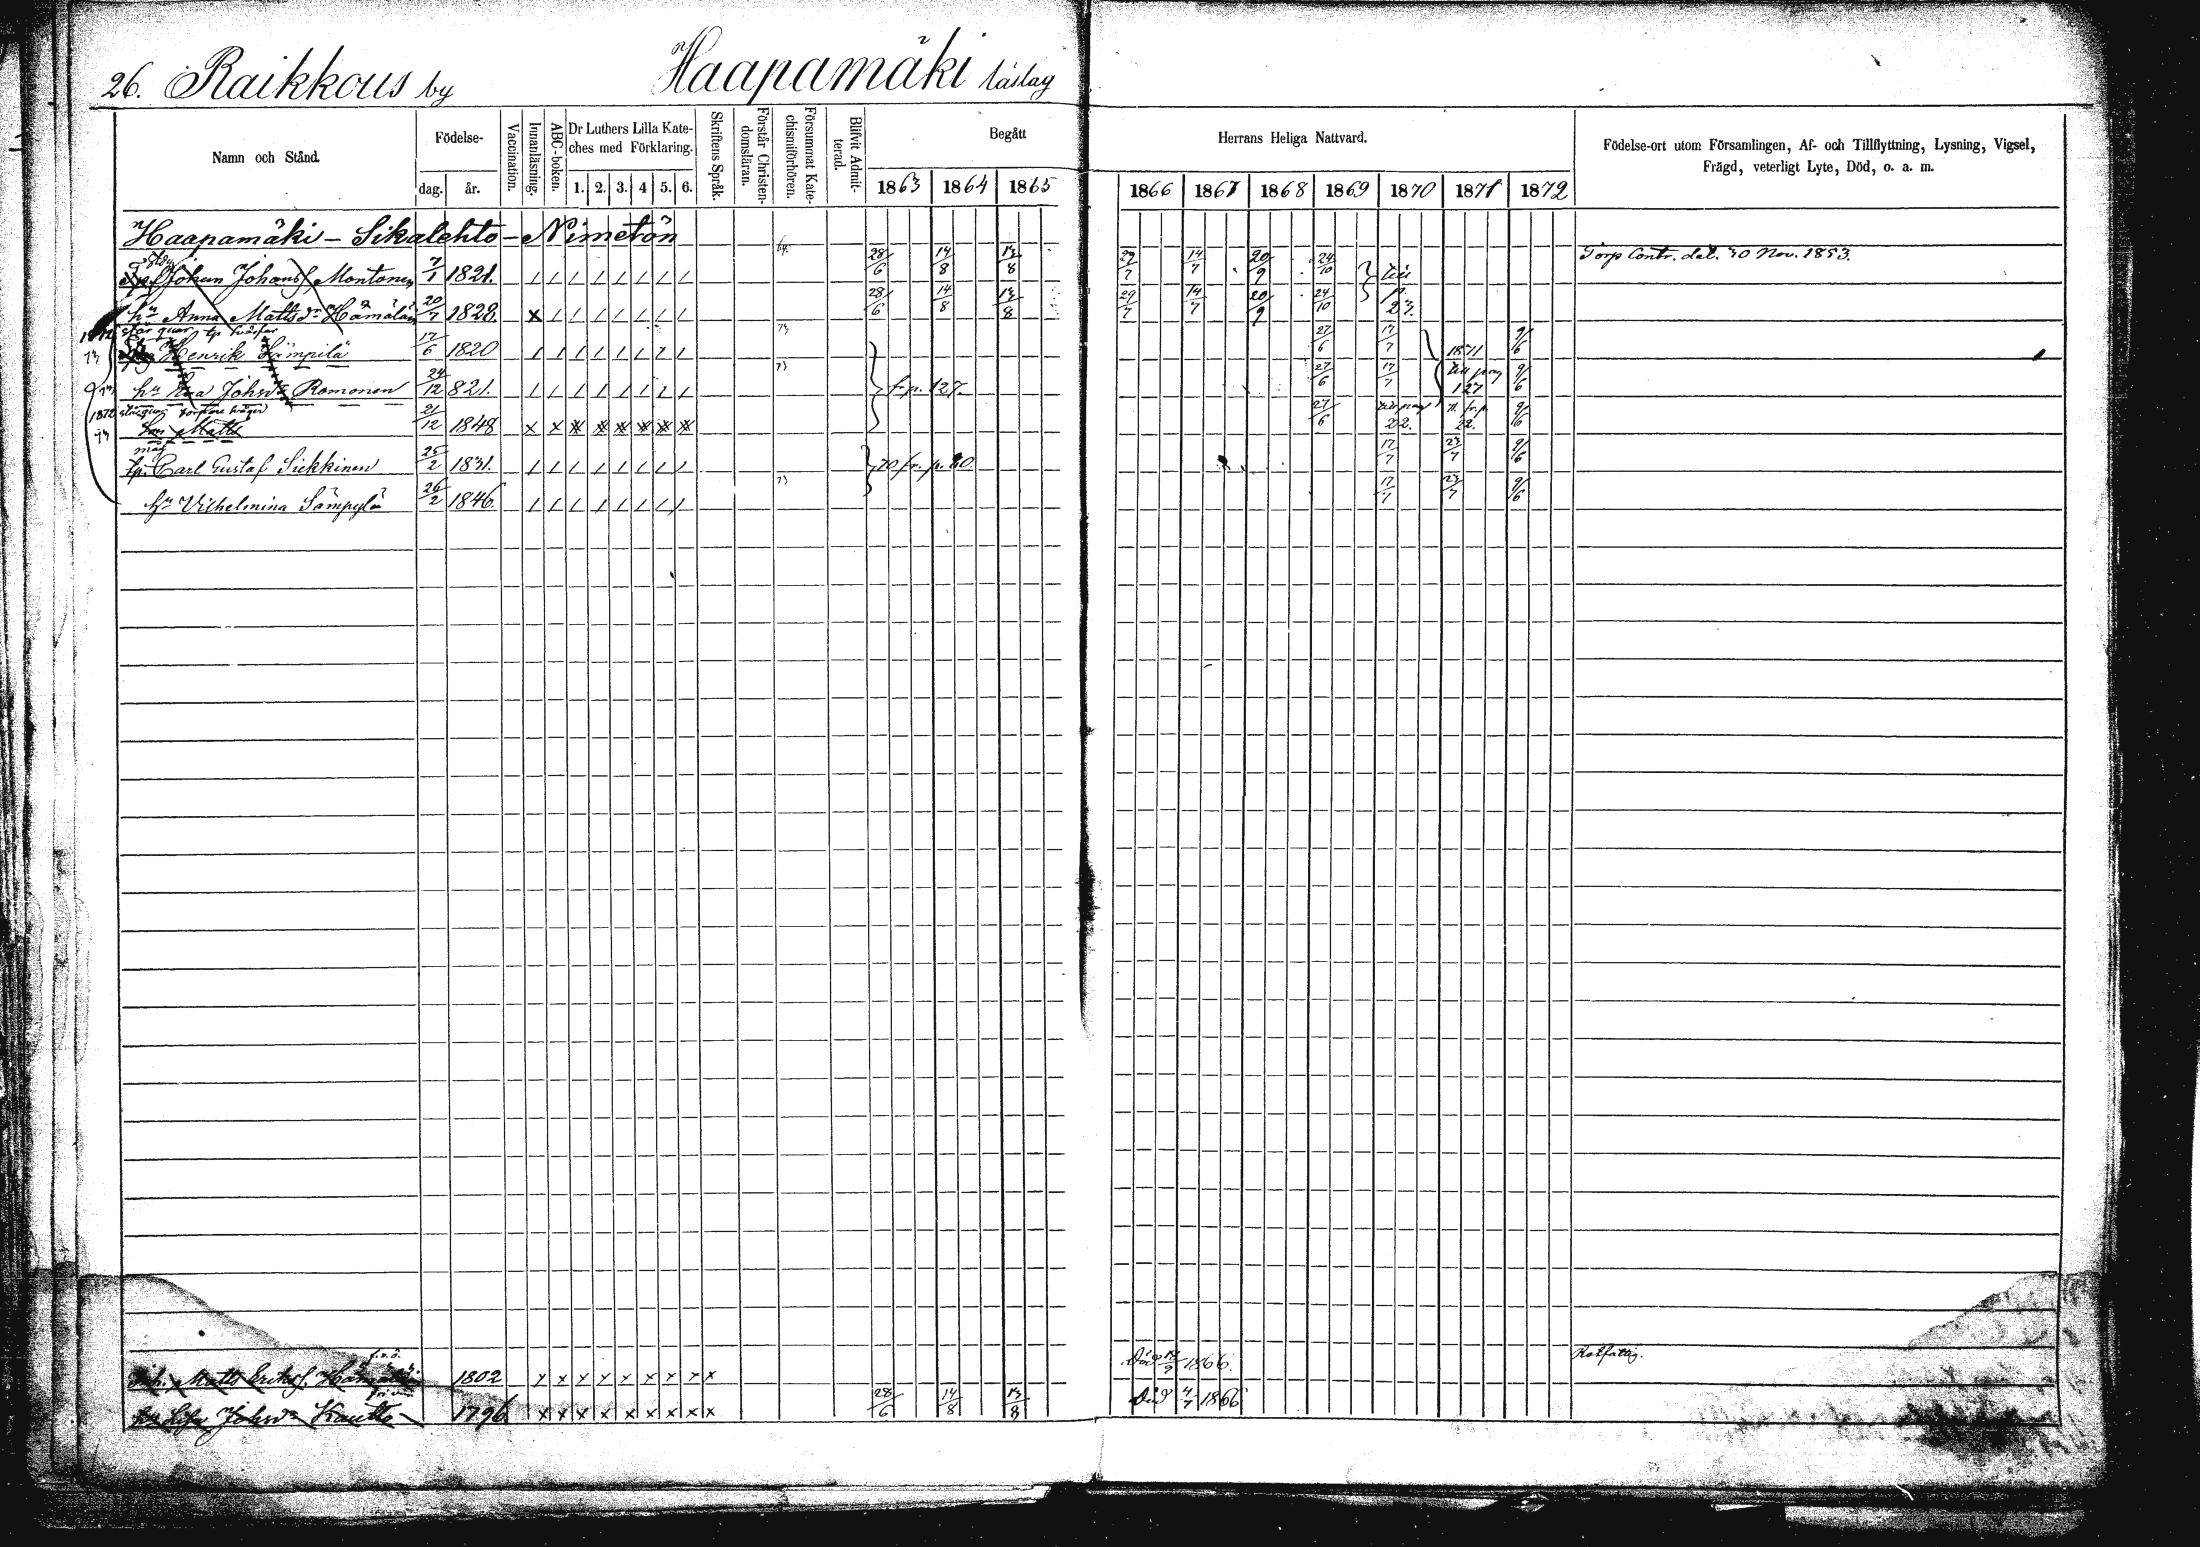 26. Raikkous by Haapamäki läslag
Namn och Stånd.
Födelse-
dag. år.
Vaccination.
Innanläsning.
ABC-boken.
Dr Luthers Lilla Kate-
ches med Förklaring.
1. 2. 3. 4 5. 6.
Skriftens Språk.
Förstår Christen-
domsläran.
Försummat Kate-
chismiförhören.
Blifvit Admit-
terad.
Begått
1863 1864 1865
Herrans Heliga Nattvard.
1866 1867 1868 1869 1870 1871 1872
Födelse-ort utom Församlingen, Af- och Tillflyttning, Lysning, Vigsel,
Frägd, veterligt Lyte, Död, o. a. m.
Haapamäki - Sikalehto - Nimetön
Johan Johans Montonen 7/1 1821. / / / / / / / / 28/6 14/8 13/8 29/7 14/7 20/9 24/10 till Torp Contr. dat. 30 Nov. 1853.
hu Anna Mattsdr 20/7 1828. x / / / / / / / 28/6 14/8 13/8 29/7 14/7 20/9 24/10 p. 23.
Henrik Sämpilä 17/6 1820 / / / / / / / / 73 27/6 17/7 1871 9/6
hu Eva Johsdr Romonen 24/12 821. / / / / / / / / 73 fr. p. 127. 27/6 17/7 till pag 127 9/6
1872
Matts 21/12 1848 x x x x x x x x 27/6 till pag 22. fr. p. 22. 9/6
måg
Carl Gustaf Siekkinen 25/2 1831. / / / / / / / / 70 fr. p. 17/7 23/7 9/6
hu Vilhelmina Sämpylä 26/2 1846. / / / / / / / / 73 17/7 23/7 9/6
Matts Eriks. 1802 x x x x x x x x x Död 1866. Rotfattig.
Johsdr Kautto 1796. x x x x x x x x x 28/6 14/8 13/8 Död 4/7 1866